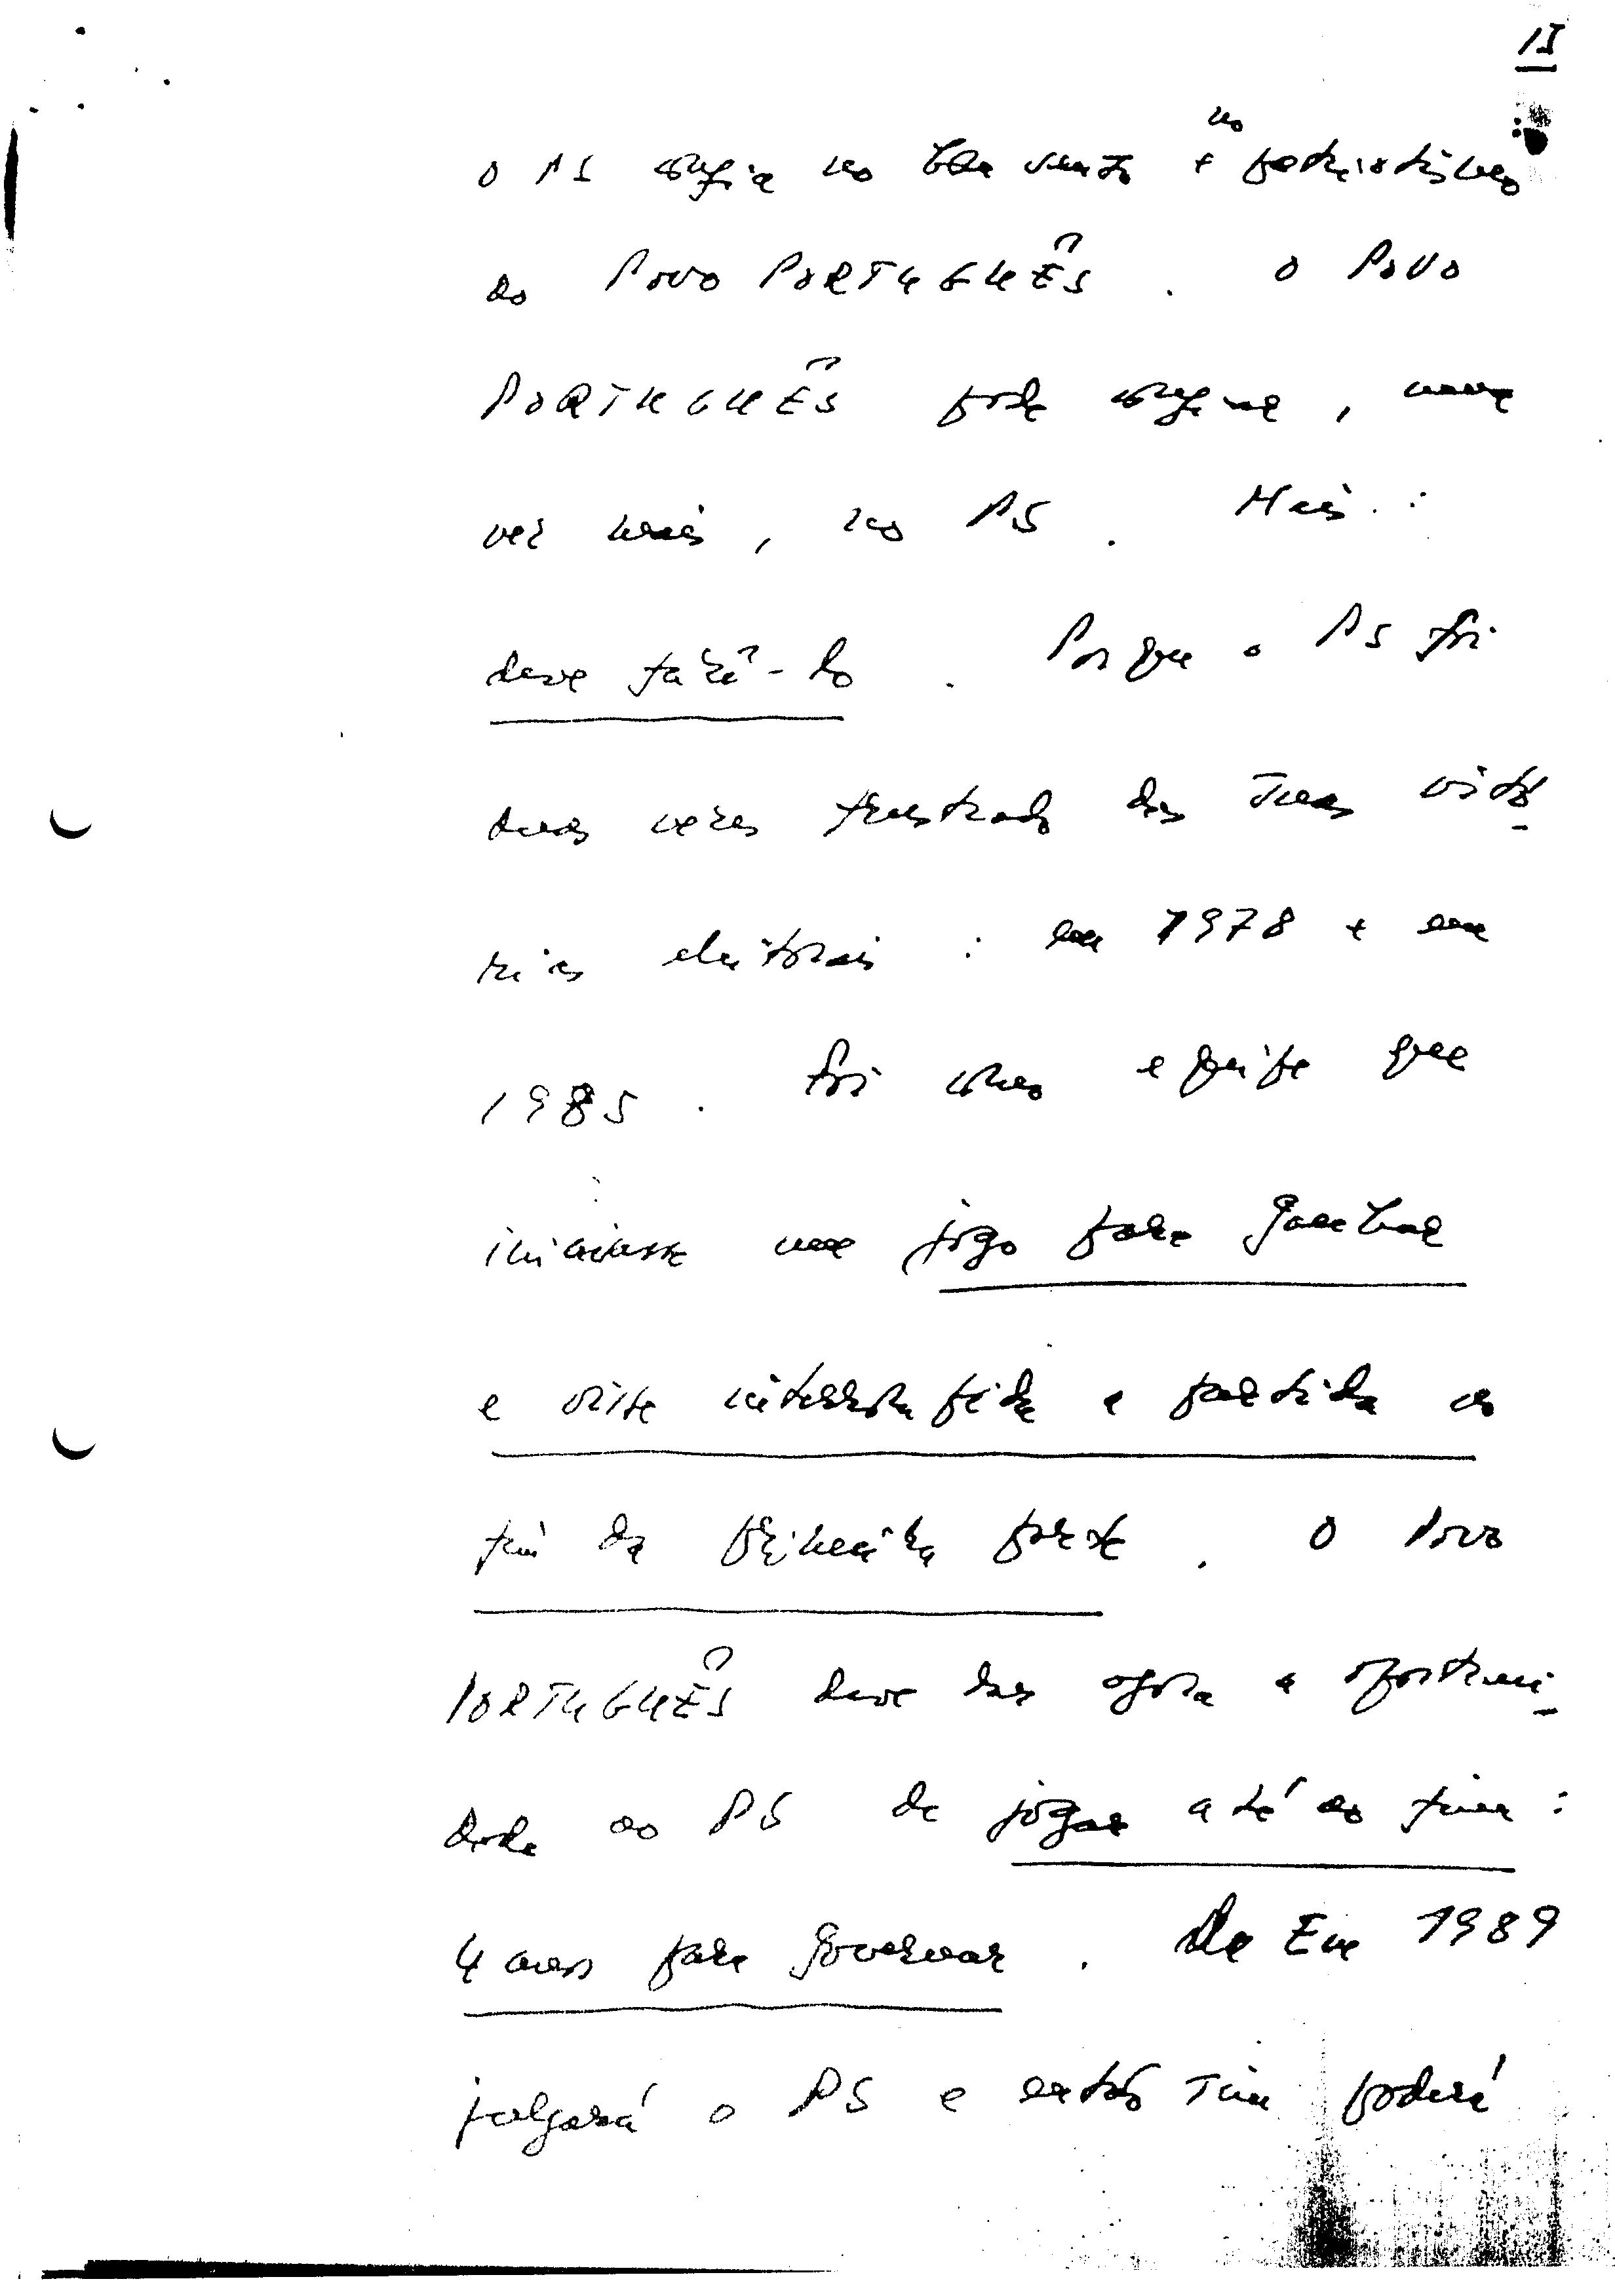 15
O PS confia no bom senso e no patriotismo
do POVO PORTUGUÊS. O POVO
PORTUGUÊS pode confiar, uma
vez mais, no PS. Mais:
deve fazê-lo. Porque o PS foi
duas vezes frustrado das suas vitó-
rias eleitorais: em 1978 e em
1985. Foi como equipe que
iniciasse um jogo para ganhar
e visse interrompida a partida no
fim da primeira parte. O Povo
PORTUGUÊS deve dar agora a oportuni-
dade ao PS de jogar até ao fim:
4 anos para governar. Em 1989
julgará o PS e então sim poderá